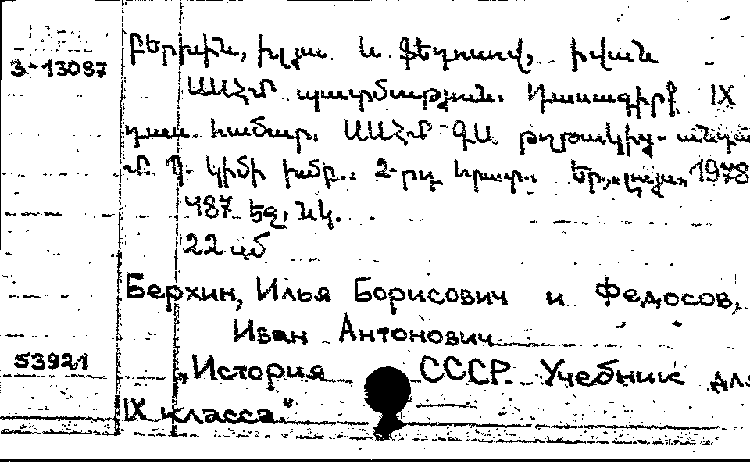 3-13087
Բերխին, Իլյա և Ֆեդոսով, Իվան
ՍՍՀՄ պատմություն. Դասագիրք IX
դաս. համար. ՍՍՀՄ ԳԱ թղթակից-անդամ
Մ. Պ. Կիմի խմբ.: 2-րդ հրատ.: Եր., «Լույս» 1978
487 եջ, նկ.
22 սմ
Берхин, Илья Борисович и Федосов,
Иван Антонович
53921
„История СССР. Учебник для
IX класса."